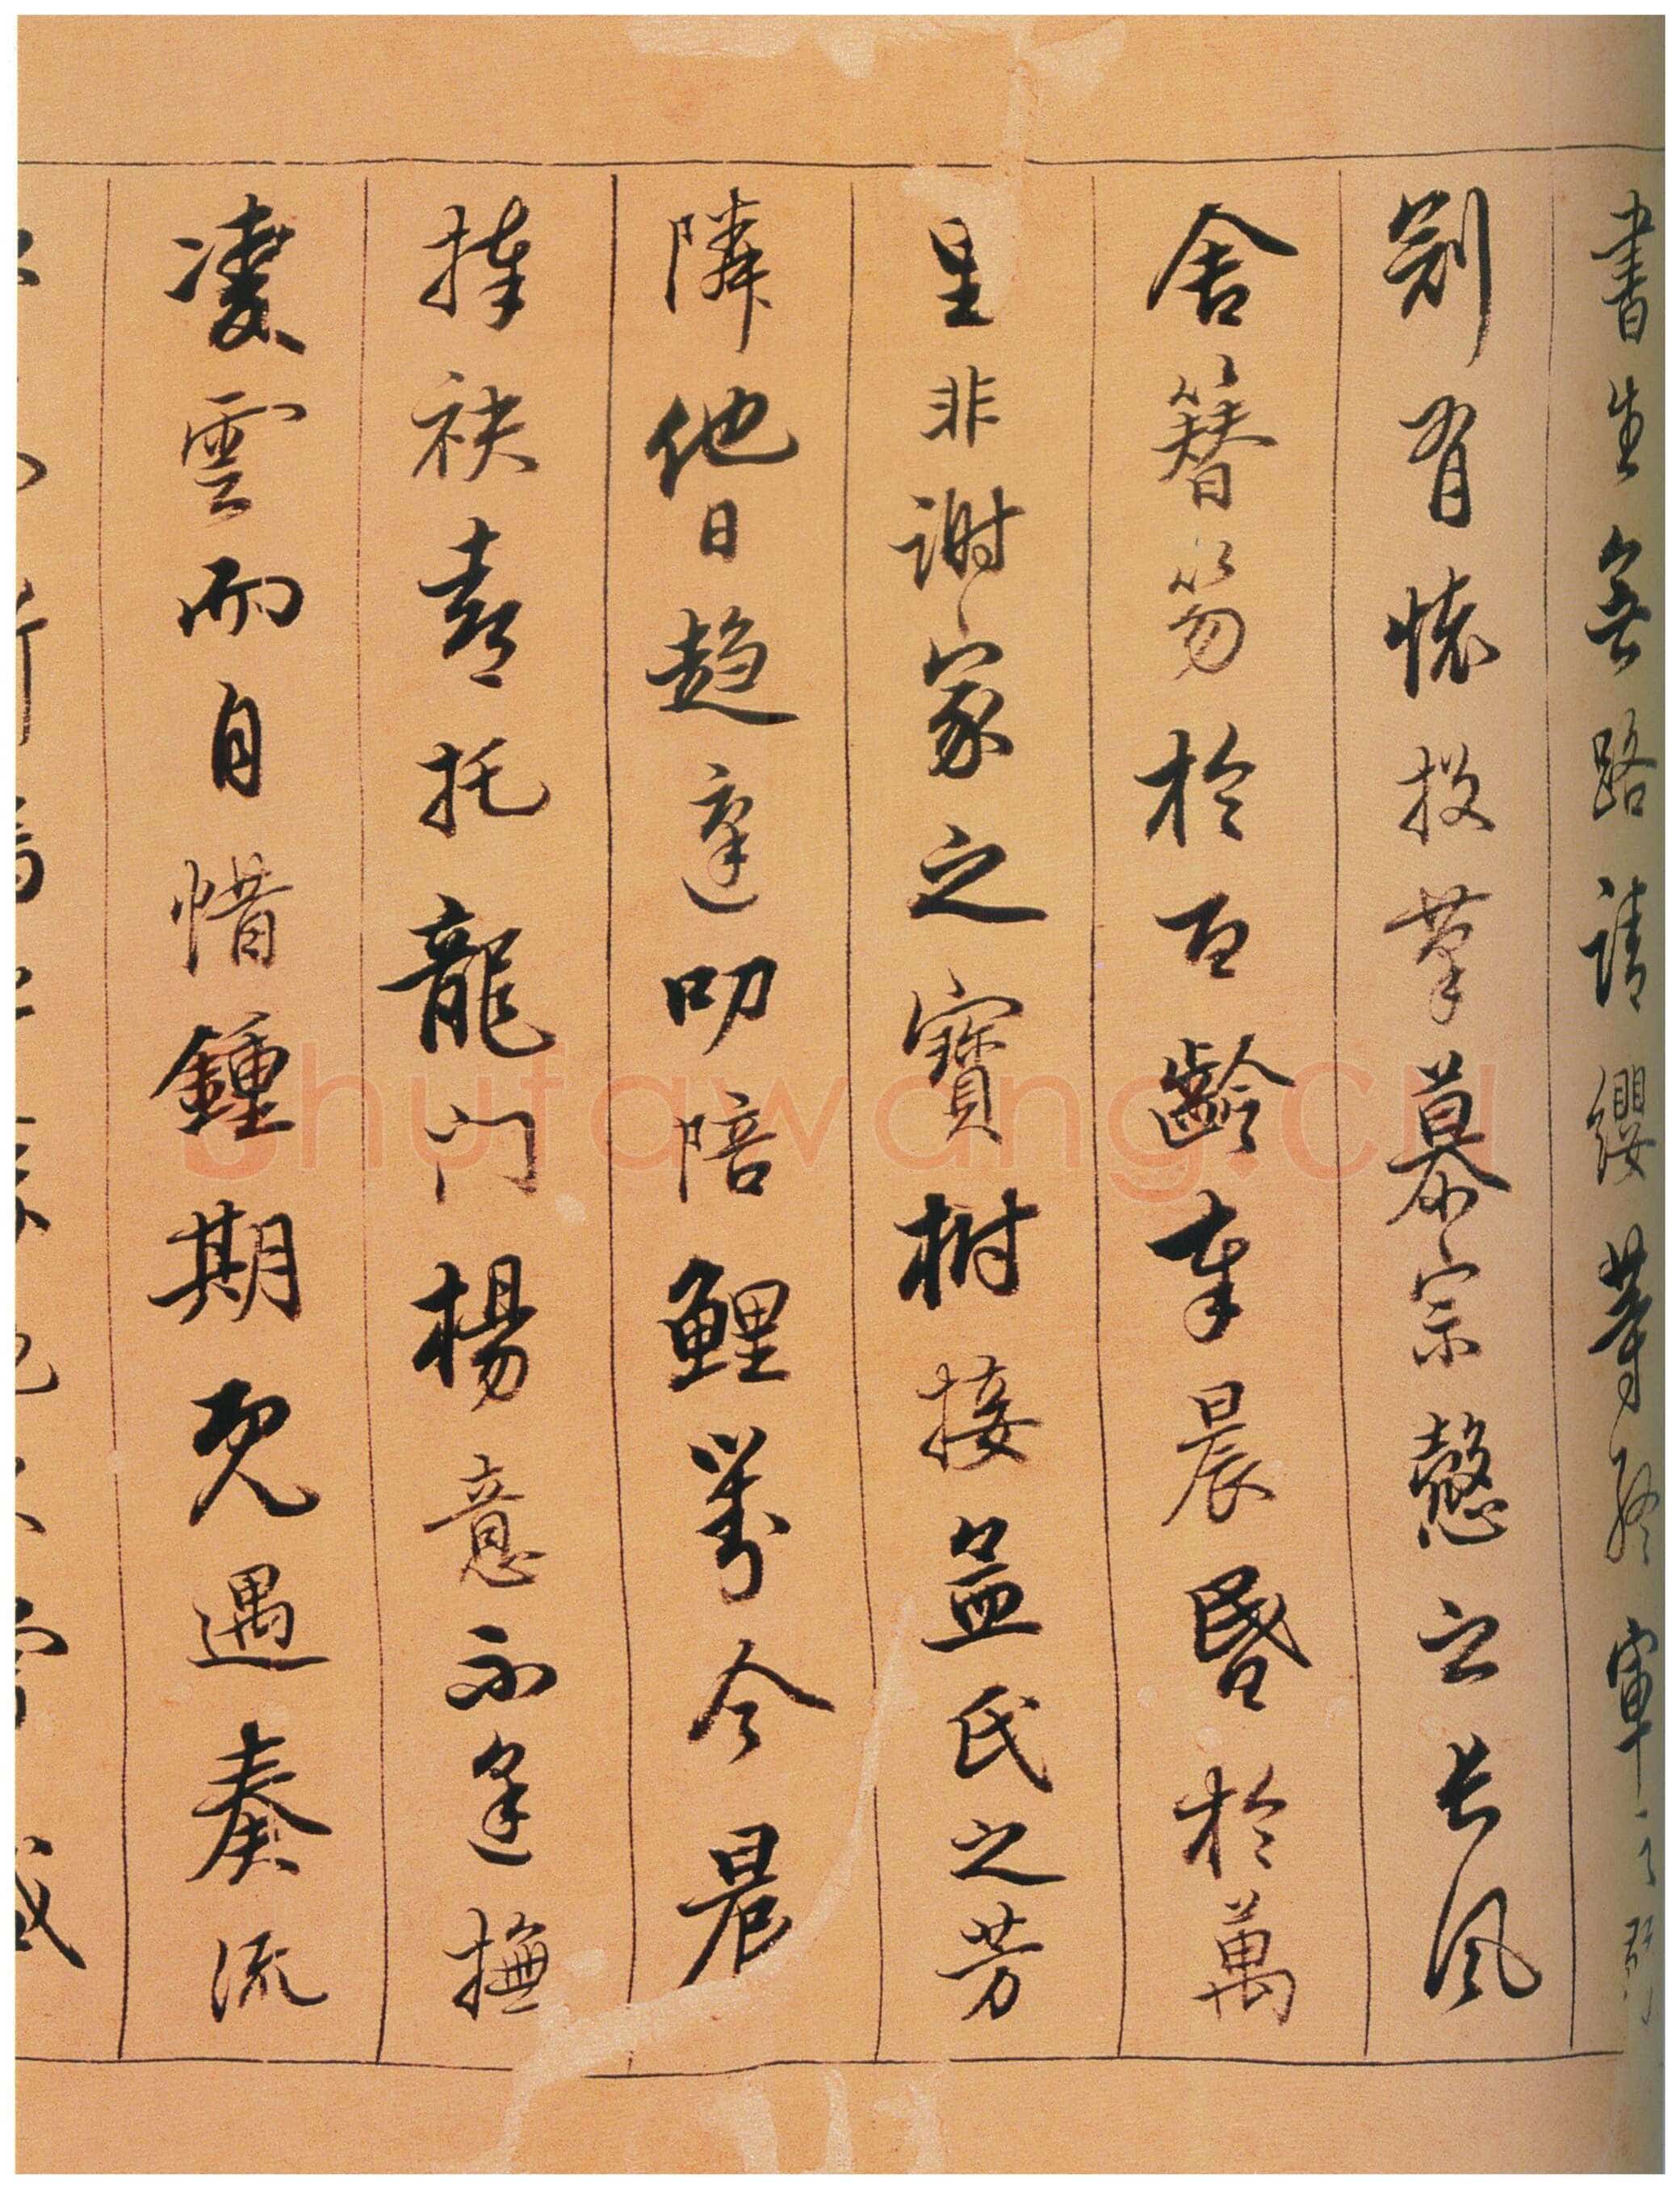 書生無路請纓等終軍之弱
冠有懷投筆慕宗慤之長風
舍簪笏於百齡奉晨昏於萬
里非謝家之寶樹接孟氏之芳
隣他日趨庭叨陪鯉對今晨
捧袂喜托龍門楊意不逢撫
凌雲而自惜鍾期既遇奏流
shufawang.cn